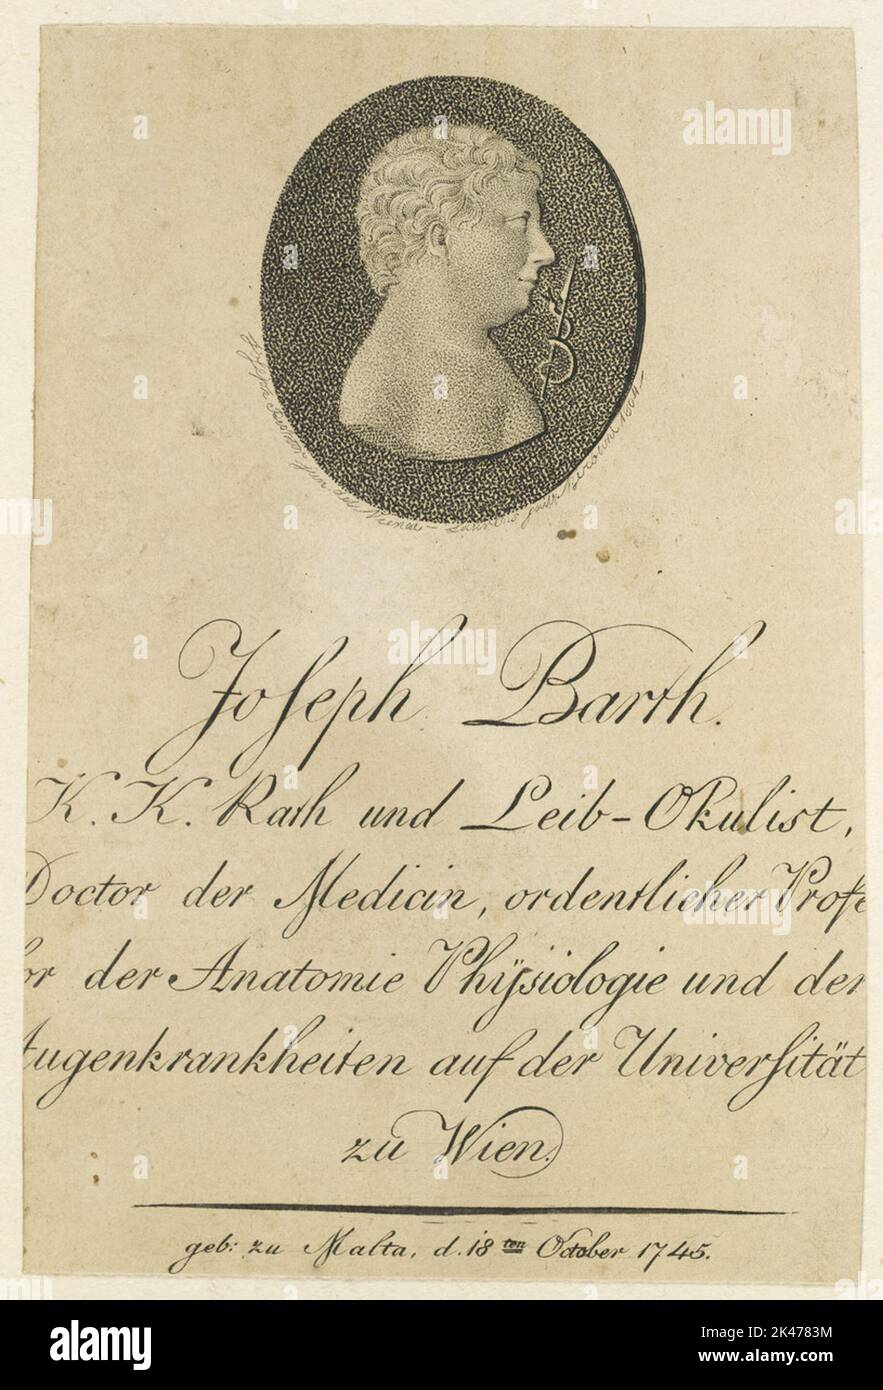 Joseph Barth.
K. K. Rath und Leib-Okulist,
Doctor der Medicin, ordentlicher Profe
for der Anatomie Phÿsiologie und der
Augenkrankheiten auf der Universität
zu Wien.
geb: zu Malta, d. 18ten October 1745.
alamy
Image ID: 2K4783M
www.alamy.com